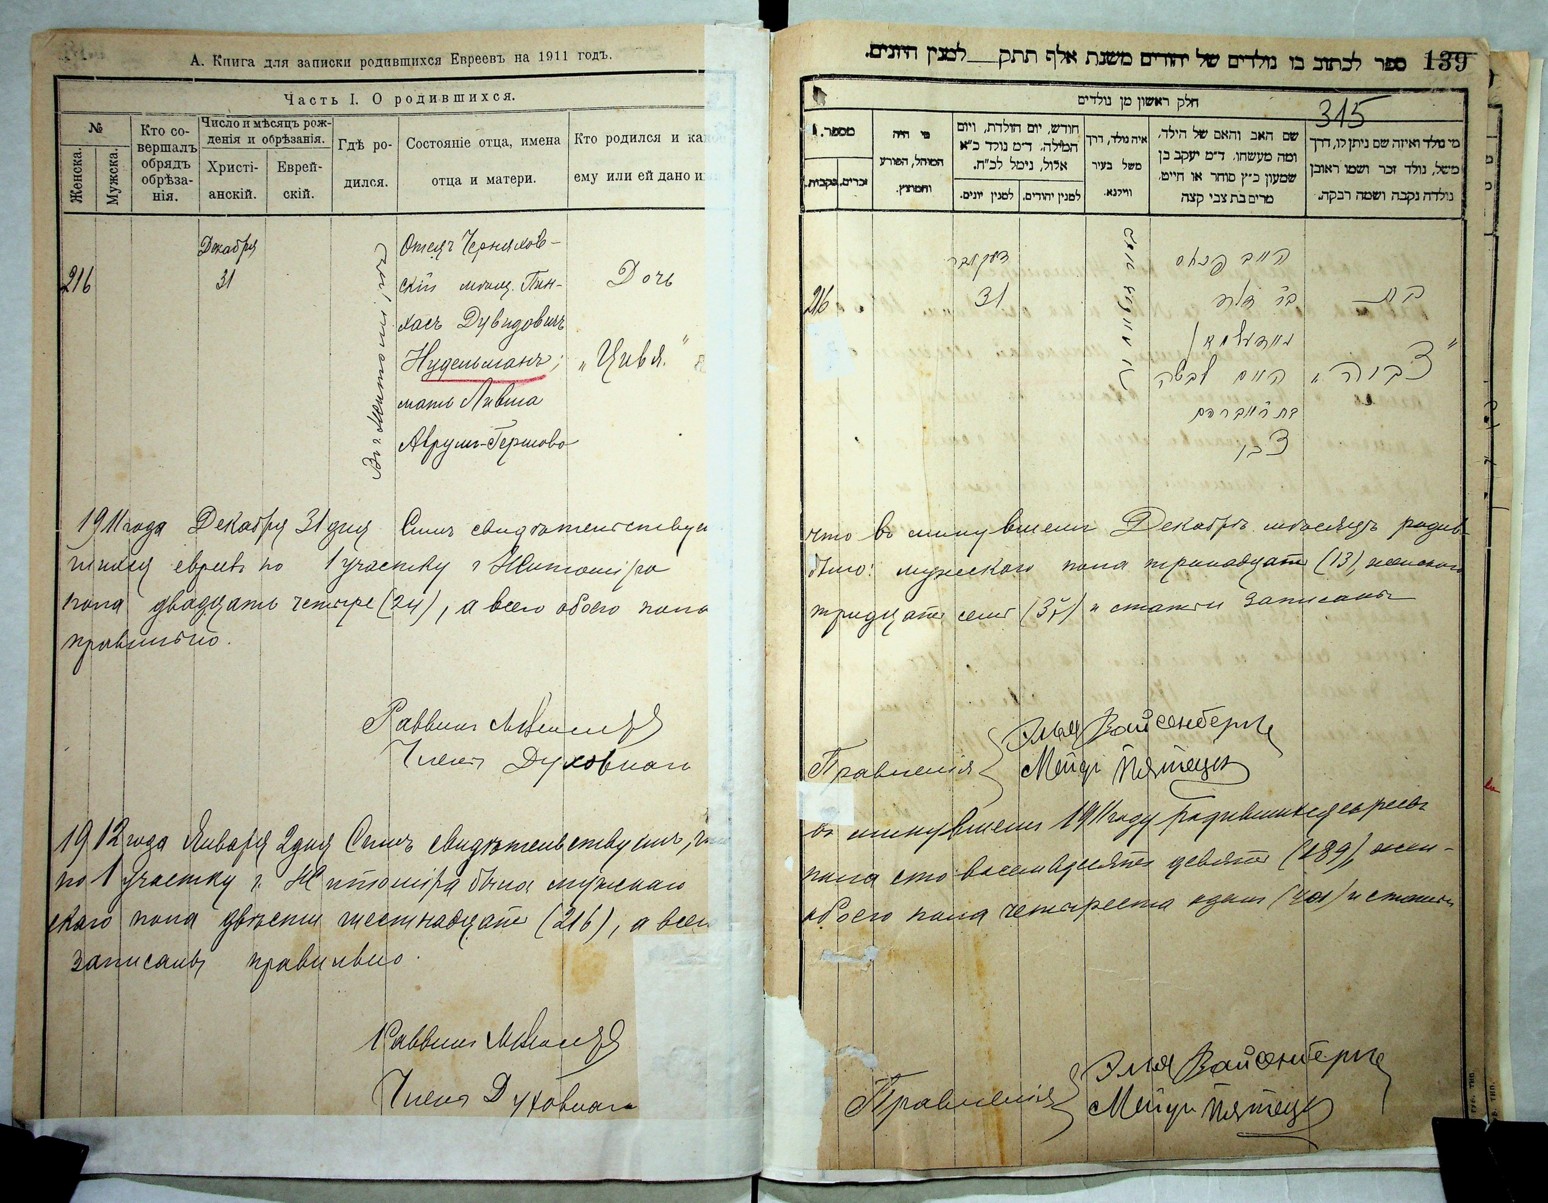 А. Книга для записки родившихся Евреевъ на 1911 годъ.
Часть I. О родившихся.
№
Женска.
Мужска.
Кто совершалъ обрядъ обрѣзанія.
Число и мѣсяцъ рожденія и обрѣзанія.
Христіанскій.
Еврейскій.
Гдѣ родился.
Состояніе отца, имена отца и матери.
Кто родился и как
ему или ей дано и
216
Декабря
31
Въ г. Житомірѣ
Отецъ Черняхов-
скій мѣщ. Пин-
хасъ Дувидовичъ
Нудельманъ;
мать Ливша
Аврумъ-Гершова
Дочь
„Цивя.“
1911 года Декабря 31 дня Симъ свидѣтельствуе
шихся евреевъ по 1 участку г Житоміра
пола двадцать четыре (24), а всего обоего пола
правильно.
Раввинъ
Члены Духовнаго
1912 года Января 2 дня Симъ свидѣтельствуемъ, что
по 1 участку г. Житоміра было мужскаго
скаго пола двѣсти шестнадцать (216), а всего
записаны правильно.
Раввинъ
Члены Духовнаго
ספר לכתוב בו נולדים של יהודים משנת אלף תתק למנין היונים. 139
315
חלק ראשון מן נולדים
מספר.
נקבות.
זכרים.
מי היה המוהל, הפורע והמוצץ.
חודש, יום הולדת, ויום המילה. ד״מ נולד כ״א אלול, נימל לכ״ח.
למנין יונים.
למנין יהודים.
איה נולד, דרך משל בעיר ווילנא.
שם האב והאם של הילד, ומה מעשהו. ד״מ יעקב בן שמעון כ״ץ סוחר או חייט, מרים בת צבי קצה
מי נולד ואיזה שם ניתן לו, דרך משל, נולד זכר ושמו ראובן נולדה נקבה ושמה רבקה.
216
דעקאבר
31
בת
„צביה“
что въ минувшемъ Декабрѣ мѣсяцѣ родив-
было: мужского пола тринадцать (13), женскаго
тридцать семь (37) и статьи записаны
Правленія
Эмя Вайсенбергъ
Мейер Пятецк
въ минувшемъ 1911 году родившихся евреевъ
пола сто восемьдесятъ девять (189), жен-
обоего пола четыреста одинъ (401) и статьи
Правленія
Эмя Вайсенбергъ
Мейер Пятецк